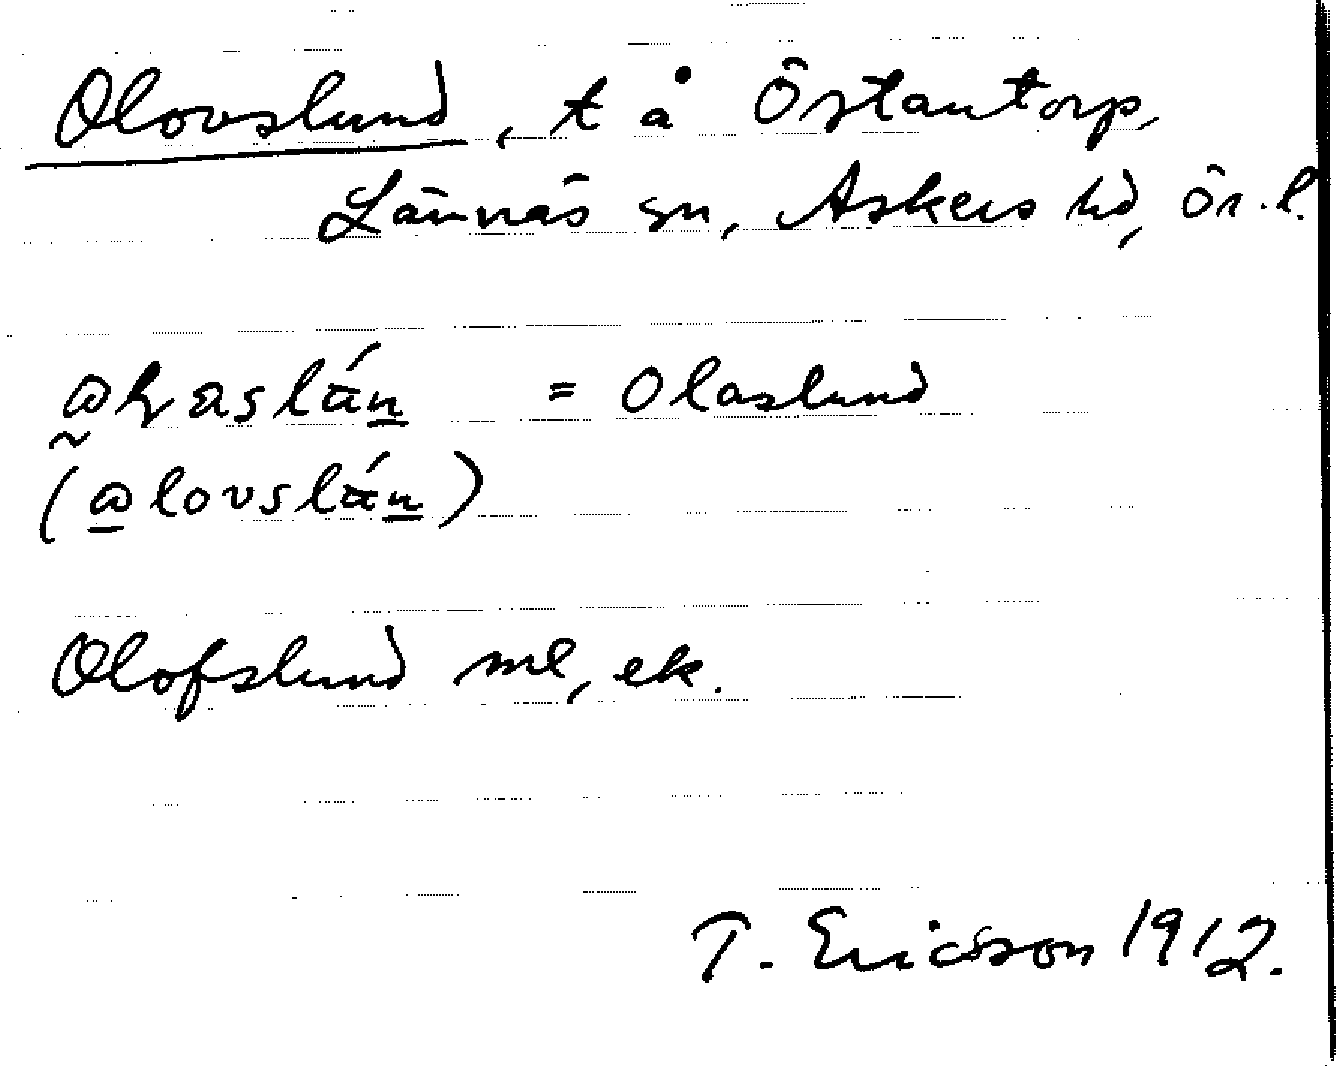 Olovslund, t å Östantorp,
Lännäs sn, Askers hd, Ör. l.
= Olaslund
Olofslund ml, ek.
T. Ericsson 1912.